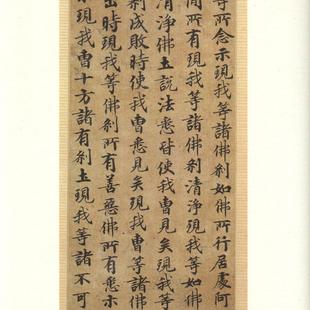 等所念示現我等諸佛剎如佛所行居處何
間所有現我等諸佛剎清淨現我等如佛
清淨佛土說法悉皆使我曹見矣現我等
剎成敗時使我曹悉見矣現我曹等諸佛
出時現我等佛剎所有善惡佛所有悉示
示現我曹十方諸有剎土現我等諸不可